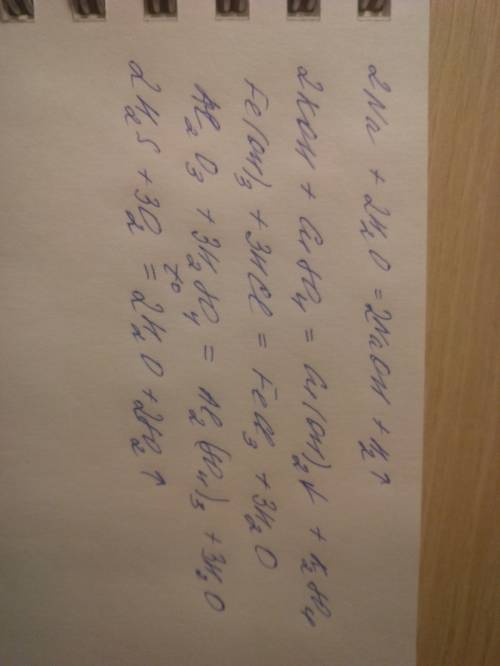 2Na + 2H₂O = 2NaOH + H₂↑
2KOH + CuSO₄ = Cu(OH)₂↓ + K₂SO₄
Fe(OH)₃ + 3HCl = FeCl₃ + 3H₂O
Al₂O₃ + 3H₂SO₄ = Al₂(SO₄)₃ + 3H₂O
2H₂S + 3O₂ t° = 2H₂O + 2SO₂↑